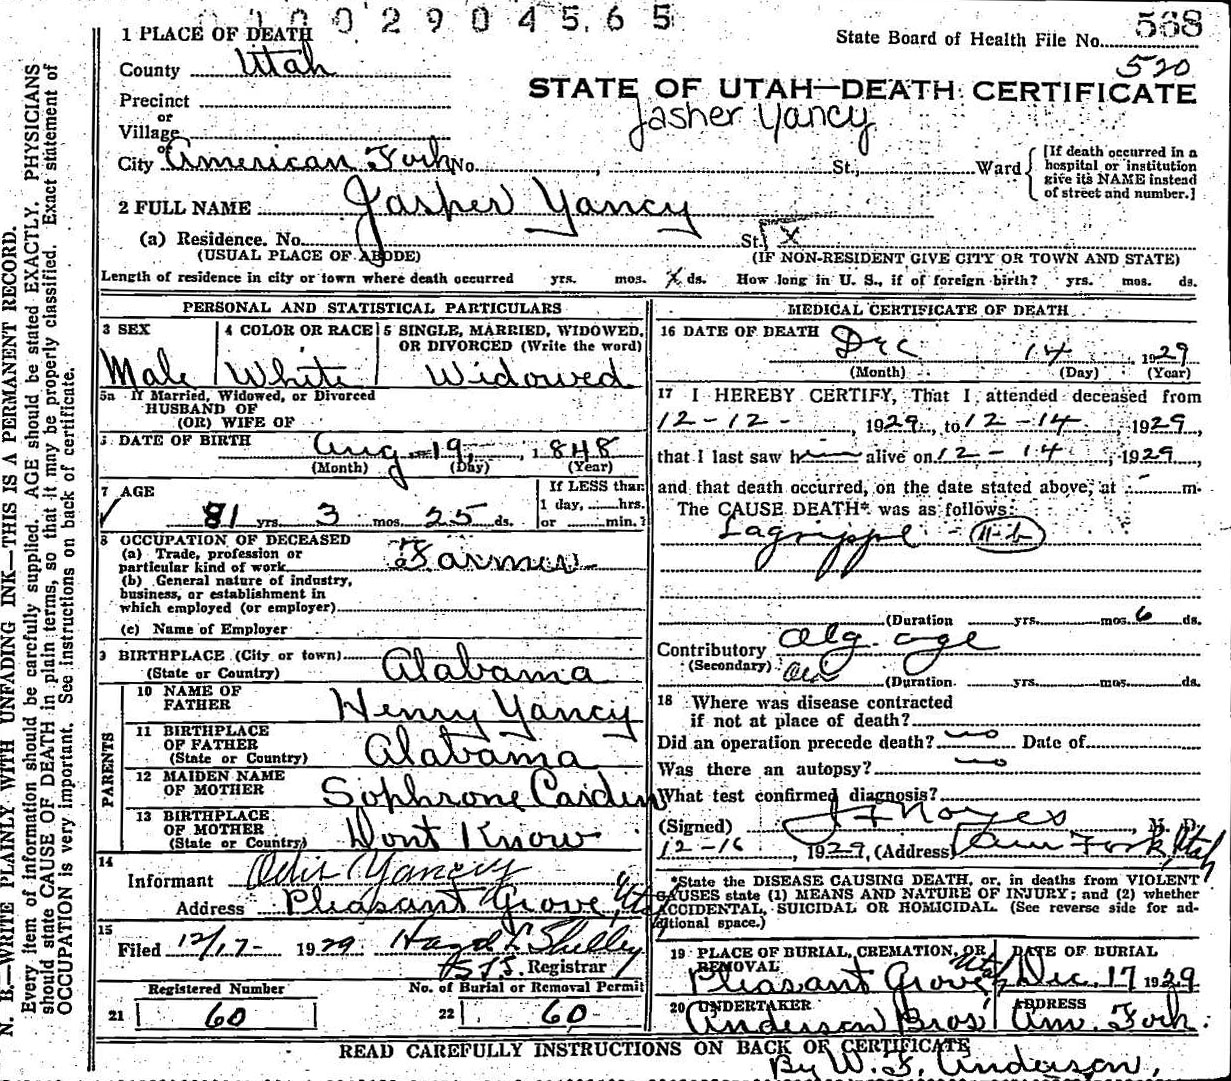 0 1 0 0 2 9 0 4 5 6 5
568
State Board of Health File No.
520
1 PLACE OF DEATH
County Utah
STATE OF UTAH—DEATH CERTIFICATE
Jasher Yancy
Precinct
or
Village
or
City American Fork No. , St., Ward
[If death occurred in a
hospital or institution
give its NAME instead
of street and number.]
2 FULL NAME Jasher Yancy
(a) Residence. No. St. X
(USUAL PLACE OF ABODE) (IF NON-RESIDENT GIVE CITY OR TOWN AND STATE)
Length of residence in city or town where death occurred yrs. mos. ds. How long in U. S., if of foreign birth? yrs. mos. ds.
PERSONAL AND STATISTICAL PARTICULARS
3 SEX 4 COLOR OR RACE 5 SINGLE, MARRIED, WIDOWED,
OR DIVORCED (Write the word)
Male White Widowed
5a If Married, Widowed, or Divorced
HUSBAND OF
(OR) WIFE OF
DATE OF BIRTH Aug 19, 1848
(Month) (Day) (Year)
7 AGE If LESS than
1 day, hrs.
81 yrs. 3 mos. 25 ds. or min.?
8 OCCUPATION OF DECEASED
(a) Trade, profession or
particular kind of work Farmer
(b) General nature of industry,
business, or establishment in
which employed (or employer)
(c) Name of Employer
9 BIRTHPLACE (City or town)
(State or Country) Alabama
PARENTS
10 NAME OF
FATHER Henry Yancy
11 BIRTHPLACE
OF FATHER
(State or Country) Alabama
12 MAIDEN NAME
OF MOTHER Sophrone Carden
13 BIRTHPLACE
OF MOTHER
(State or Country) Dont Know
14
Informant Yancy
Address Pleasant Grove, Utah
15
Filed 12/17- 1929. Shelley
Registrar
Registered Number No. of Burial or Removal Permit
21 60 22 60
MEDICAL CERTIFICATE OF DEATH
16 DATE OF DEATH Dec 14 1929
(Month) (Day) (Year)
17 I HEREBY CERTIFY, That I attended deceased from
12-12-, 1929, to 12-14-, 1929,
that I last saw h alive on 12-14, 1929,
and that death occurred, on the date stated above, at - m.
The CAUSE DEATH* was as follows:
Lagrippe - 11-b
(Duration yrs. mos. 6 ds.
Contributory age
(Secondary) (Duration yrs. mos. ds.
18 Where was disease contracted
if not at place of death?
Did an operation precede death? no Date of
Was there an autopsy? no
What test confirmed diagnosis?
(Signed) Noyes, M. D.
12-16, 1929, (Address) Am Fork, Utah
*State the DISEASE CAUSING DEATH, or, in deaths from VIOLENT
CAUSES state (1) MEANS AND NATURE OF INJURY; and (2) whether
ACCIDENTAL, SUICIDAL OR HOMICIDAL. (See reverse side for ad-
ditional space.)
19 PLACE OF BURIAL, CREMATION, OR
REMOVAL DATE OF BURIAL
Pleasant Grove, Utah Dec. 17 1929
20 UNDERTAKER ADDRESS
Anderson Bros Am. Fork.
READ CAREFULLY INSTRUCTIONS ON BACK OF CERTIFICATE
By W. F. Anderson,
N. B.—WRITE PLAINLY WITH UNFADING INK—THIS IS A PERMANENT RECORD.
Every item of information should be carefully supplied. AGE should be stated EXACTLY. PHYSICIANS
should state CAUSE OF DEATH in plain terms, so that it may be properly classified. Exact statement of
OCCUPATION is very important. See instructions on back of certificate.